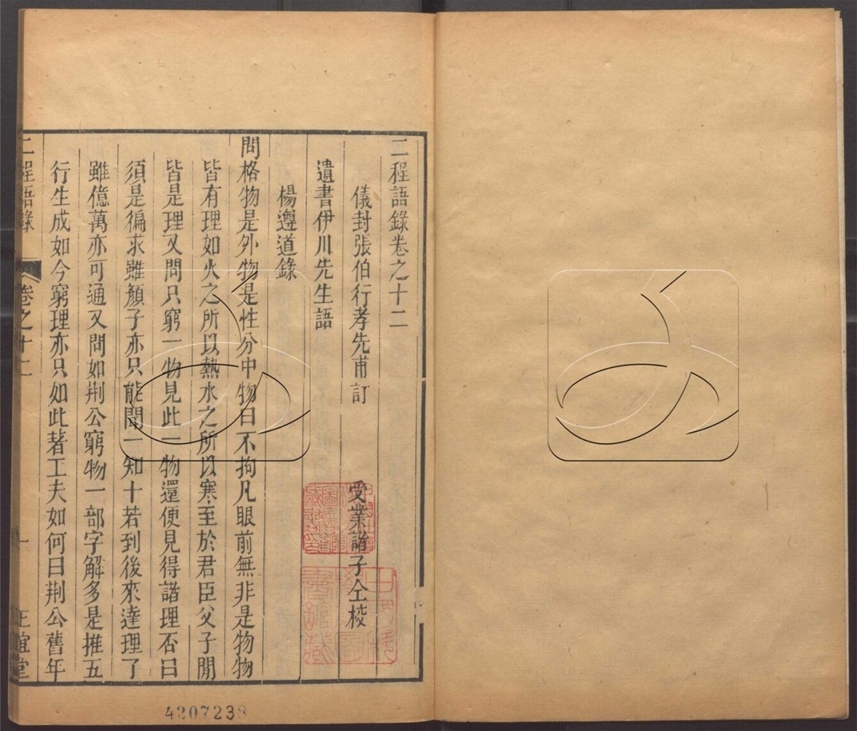 二程語錄卷之十二
儀封張伯行孝先甫訂 受業諸子仝校
遺書伊川先生語
楊遵道錄
問格物是外物是性分中物曰不拘凡眼前無非是物物
皆有理如火之所以熱水之所以寒至於君臣父子間
皆是理又問只窮一物見此一物還便見得諸理否曰
須是徧求雖顏子亦只能聞一知十若到後來達理了
雖億萬亦可通又問如荆公窮物一部字解多是推五
行生成如今窮理亦只如此著工夫如何曰荆公舊年
二程語錄 卷之十二 一 正誼堂
4207238